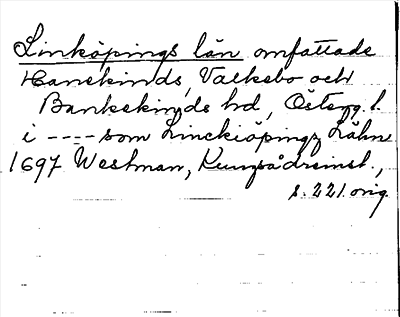 Linköpings län omfattade
Hanekinds, Valkebo och
Bankekinds hd, Österg. l.
i ---- som Linckiöpingz Lähn
1697 Westman, Kungsådreinst.,
s. 221 orig.